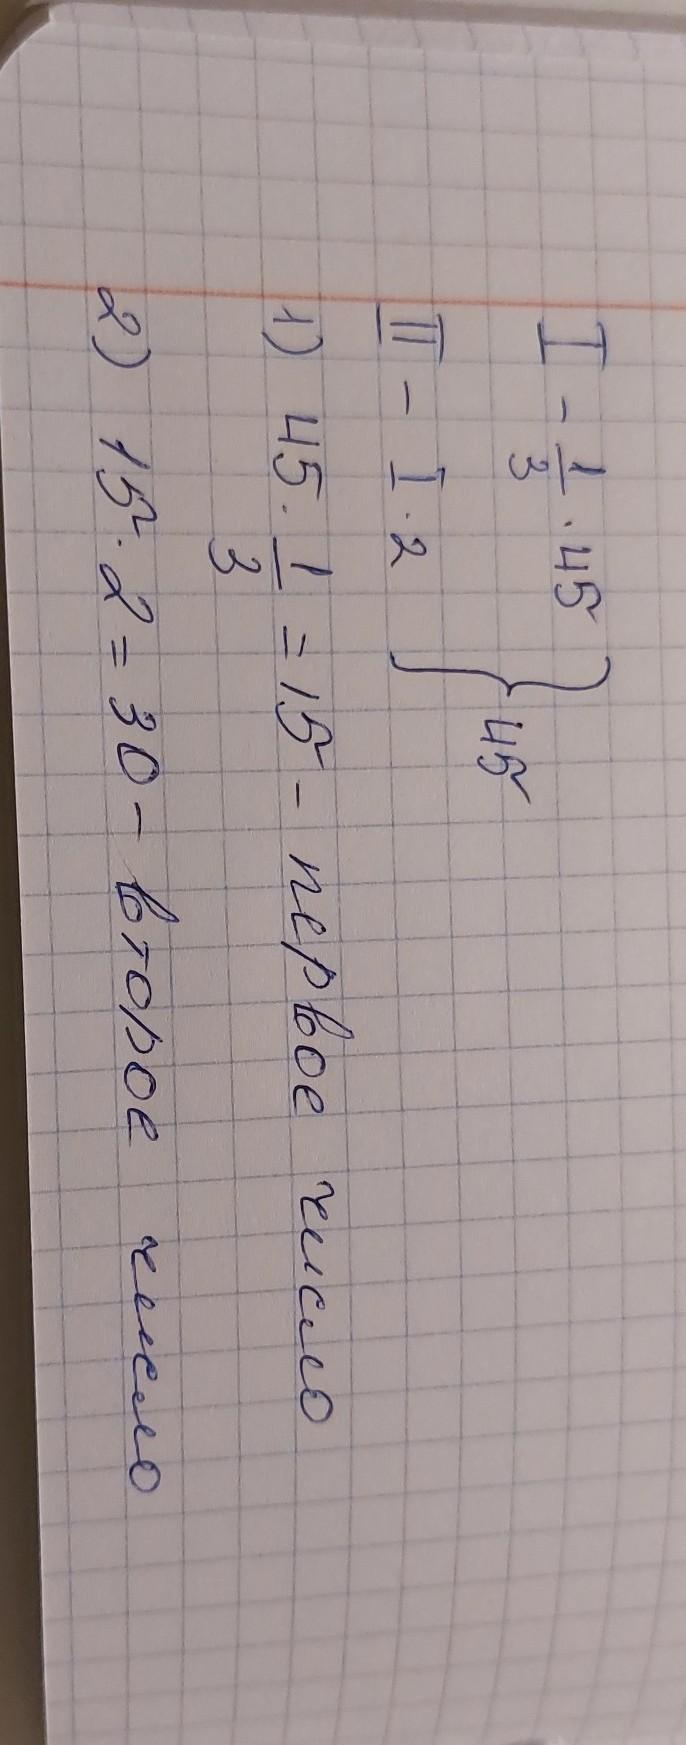 I - 1/3 · 45
II - I · 2 } 45
1) 45 · 1/3 = 15 - первое число
2) 15 · 2 = 30 - второе число